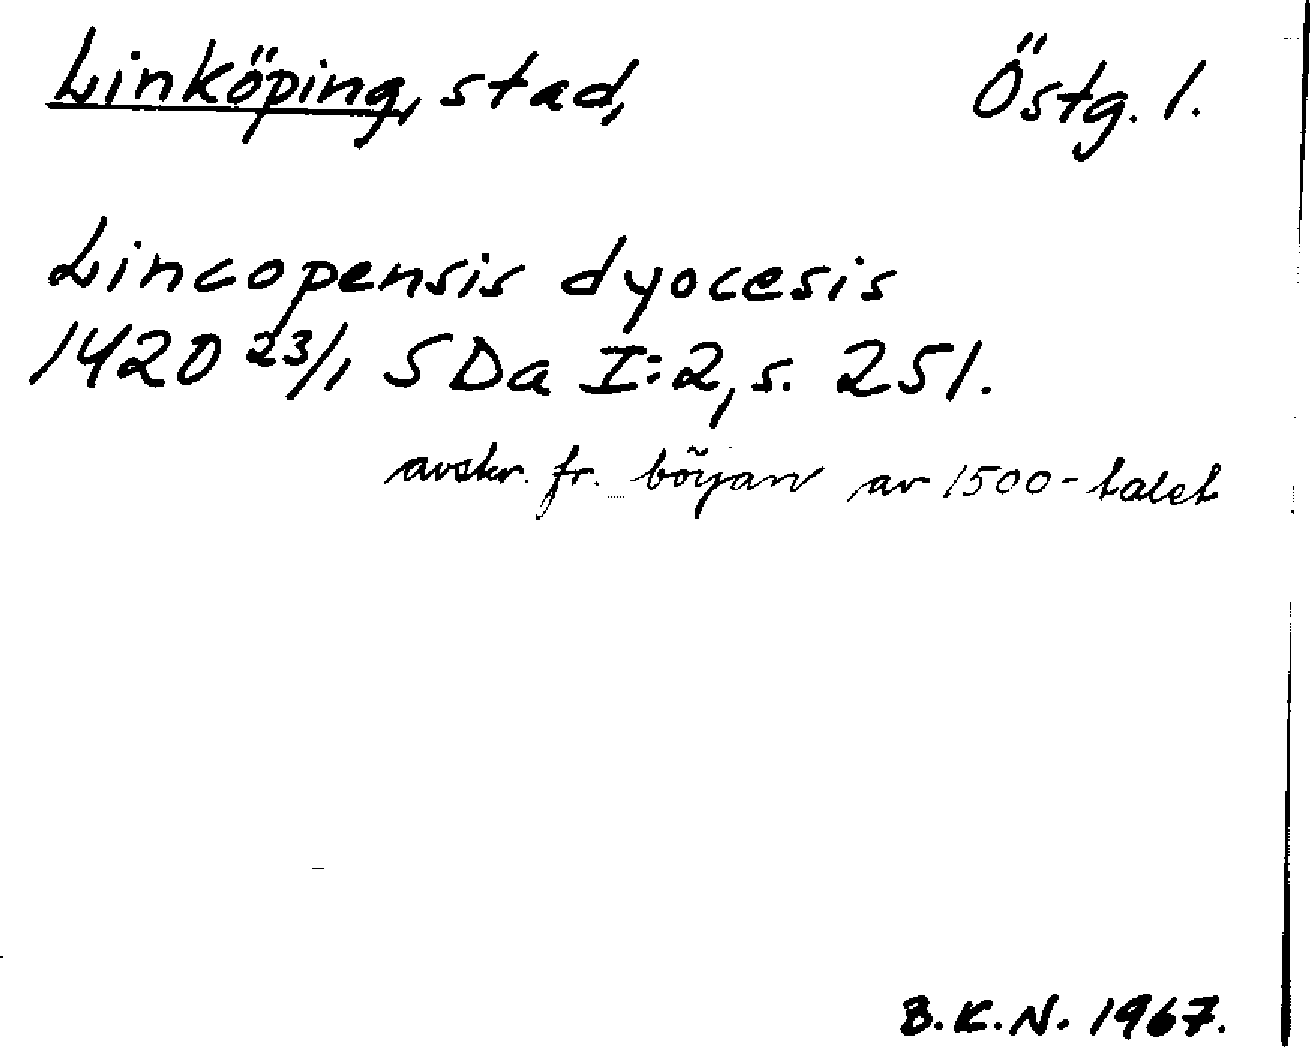 Linköping, stad, Östg. l.
Lincopensis dyocesis
1420 23/1 SDa I:2, s. 251.
avskr. fr. början av 1500-talet
B.K.N. 1967.